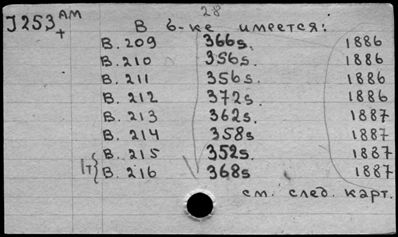 28
J253 АМ
+
В б-ке имеется:
В. 209 366s. 1886
В. 210 356s. 1886
В. 211 356s. 1886
В. 212 372s. 1886
В. 213 362s. 1887
В. 214 358s 1887
В. 215 352s. 1887
1т { В. 216 368s 1887
см. след. карт.